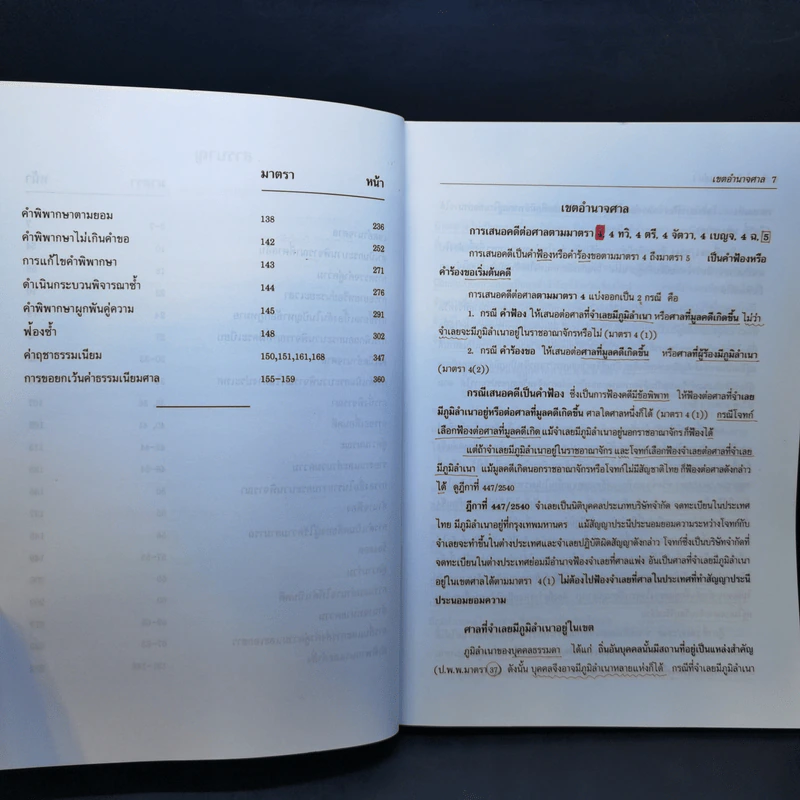 มาตรา
หน้า
คำพิพากษาตามยอม 138 236
คำพิพากษาไม่เกินคำขอ 142 252
การแก้ไขคำพิพากษา 143 271
ดำเนินกระบวนพิจารณาซ้ำ 144 276
คำพิพากษาผูกพันคู่ความ 145 291
ฟ้องซ้ำ 148 302
ค่าฤชาธรรมเนียม 150,151,161,168 347
การขอยกเว้นค่าธรรมเนียมศาล 155-159 360
เขตอำนาจศาล 7
เขตอำนาจศาล
การเสนอคดีต่อศาลตามมาตรา 4, 4 ทวิ, 4 ตรี, 4 จัตวา, 4 เบญจ, 4 ฉ, 5
การเสนอคดีเป็นคำฟ้องหรือคำร้องขอตามมาตรา 4 ถึงมาตรา 5 เป็นคำฟ้องหรือ
คำร้องขอเริ่มต้นคดี
การเสนอคดีต่อศาลตามมาตรา 4 แบ่งออกเป็น 2 กรณี คือ
1. กรณี คำฟ้อง ให้เสนอต่อศาลที่จำเลยมีภูมิลำเนา หรือศาลที่มูลคดีเกิดขึ้น ไม่ว่า
จำเลยจะมีภูมิลำเนาอยู่ในราชอาณาจักรหรือไม่ (มาตรา 4 (1))
2. กรณี คำร้องขอ ให้เสนอต่อศาลที่มูลคดีเกิดขึ้น หรือศาลที่ผู้ร้องมีภูมิลำเนา
(มาตรา 4(2))
กรณีเสนอคดีเป็นคำฟ้อง ซึ่งเป็นการฟ้องคดีมีข้อพิพาท ให้ฟ้องต่อศาลที่จำเลย
มีภูมิลำเนาอยู่หรือต่อศาลที่มูลคดีเกิดขึ้น ศาลใดศาลหนึ่งก็ได้ (มาตรา 4 (1)) กรณีโจทก์
เลือกฟ้องต่อศาลที่มูลคดีเกิด แม้จำเลยมีภูมิลำเนาอยู่นอกราชอาณาจักร ก็ฟ้องได้
แต่ถ้าจำเลยมีภูมิลำเนาอยู่ในราชอาณาจักร และโจทก์เลือกฟ้องจำเลยต่อศาลที่จำเลย
มีภูมิลำเนา แม้มูลคดีเกิดนอกราชอาณาจักรหรือโจทก์ไม่มีสัญชาติไทย ก็ฟ้องต่อศาลดังกล่าว
ได้ ดูฎีกาที่ 447/2540
ฎีกาที่ 447/2540 จำเลยเป็นนิติบุคคลประเภทบริษัทจำกัด จดทะเบียนในประเทศ
ไทย มีภูมิลำเนาอยู่ที่กรุงเทพมหานคร แม้สัญญาประนีประนอมยอมความระหว่างโจทก์กับ
จำเลยจะทำขึ้นในต่างประเทศและจำเลยปฏิบัติผิดสัญญาดังกล่าว โจทก์ซึ่งเป็นบริษัทจำกัดที่
จดทะเบียนในต่างประเทศย่อมมีอำนาจฟ้องจำเลยที่ศาลแพ่ง อันเป็นศาลที่จำเลยมีภูมิลำเนา
อยู่ในเขตศาลได้ตามมาตรา 4(1) ไม่ต้องไปฟ้องจำเลยที่ศาลในประเทศที่ทำสัญญาประนี
ประนอมยอมความ
ศาลที่จำเลยมีภูมิลำเนาอยู่ในเขต
ภูมิลำเนาของบุคคลธรรมดา ได้แก่ ถิ่นอันบุคคลนั้นมีสถานที่อยู่เป็นแหล่งสำคัญ
(ป.พ.พ.มาตรา 37) ดังนั้น บุคคลจึงอาจมีภูมิลำเนาหลายแห่งก็ได้ กรณีที่จำเลยมีภูมิลำเนา